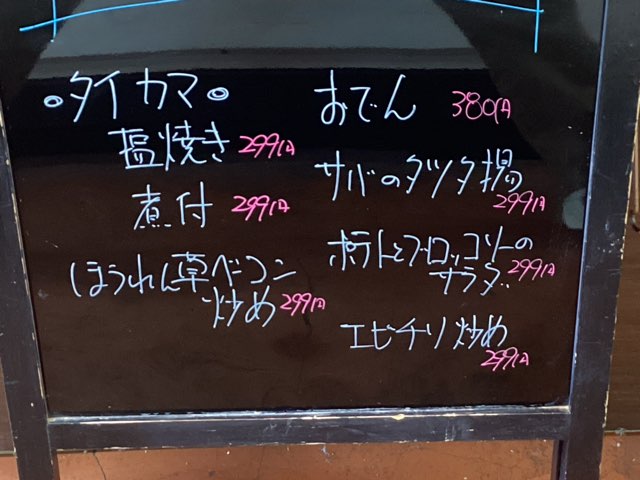 ◦タイカマ◦
塩焼き 299円
煮付 299円
ほうれん草ベーコン
炒め 299円
おでん 380円
サバのタツタ揚
299円
ポテトとブロッコリーの
サラダ 299円
エビチリ炒め
299円